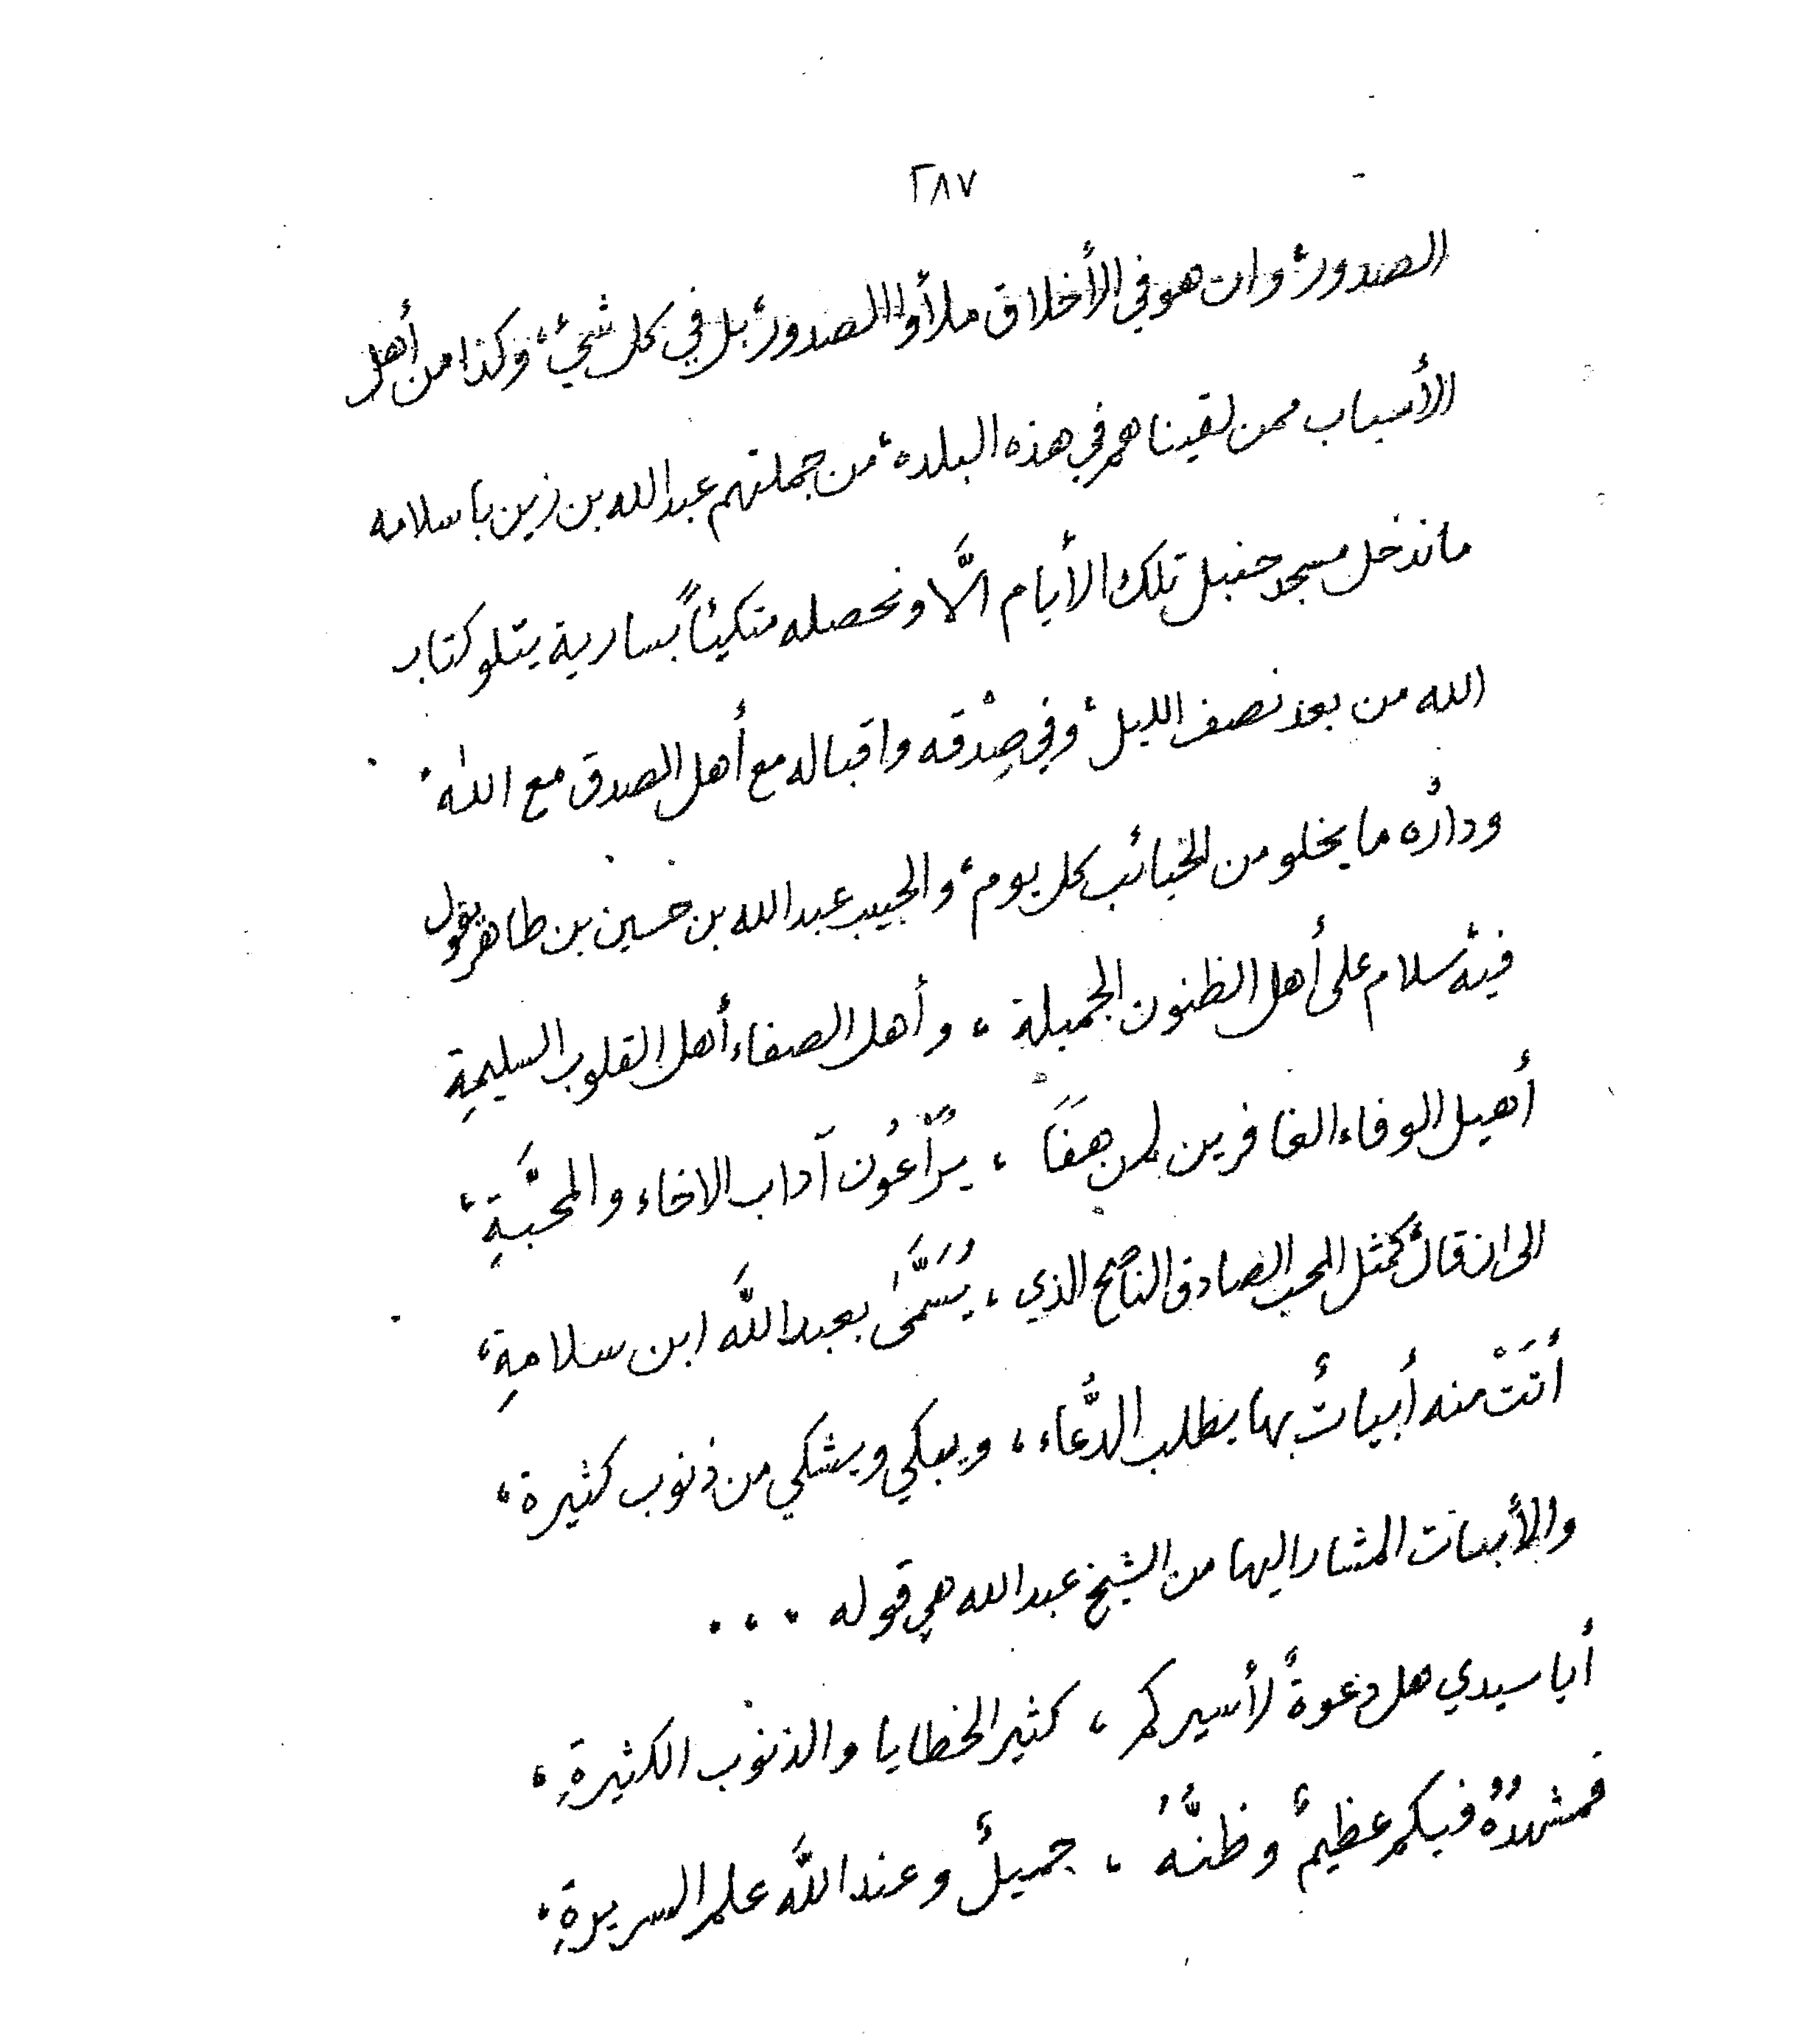 ٢٨٧
الصدور، وان هو في الأخلاق ملأوا الصدور، بل في كل شيء، وكذا من أهل
الأسباب ممن لقيناهم في هذه البلده، من جملتهم عبدالله بن زين باسلامه
ما ندخل مسجد حنبل تلك الأيام الَّا ونحصله متكيئاً بسارية يتلو كتاب
الله من بعد نصف الليل، وفي صِدْقه واقباله مع أهل الصدق مع الله.
وداره ما يخلو من الخبائب كل يوم، والحبيب عبدالله بن حسين بن طاهر يقول
فيه، سلام على أهل الظنون الجميلة ، وأهل الصفاء أهل القلوب السليمةِ
أهيل الوفاء الغافرين لمن هَفَا ، يُراعُون آداب الاخاء والمحبَّةِ،
الى ان قال، كمثل المحب الصادق الناصح الذي ، يُسَمَّىٰ بعبداللَّه ابن سلامةِ،
أتَتْ منه أبياتٌ بها يطلب الدُّعاء ، ويبكي ويشكي من ذنوب كثيرة ،
والأبيات المشار اليها من الشيخ عبدالله هي قوله ...
أيا سيدي هل دعوةً لأسيركم ، كثير الخطايا والذنوب الكثيرةِ ،
فمشهدُهُ فيكم عظيمٌ وظنُّهُ ، جميلٌ وعند اللَّه علم السريرةِ.